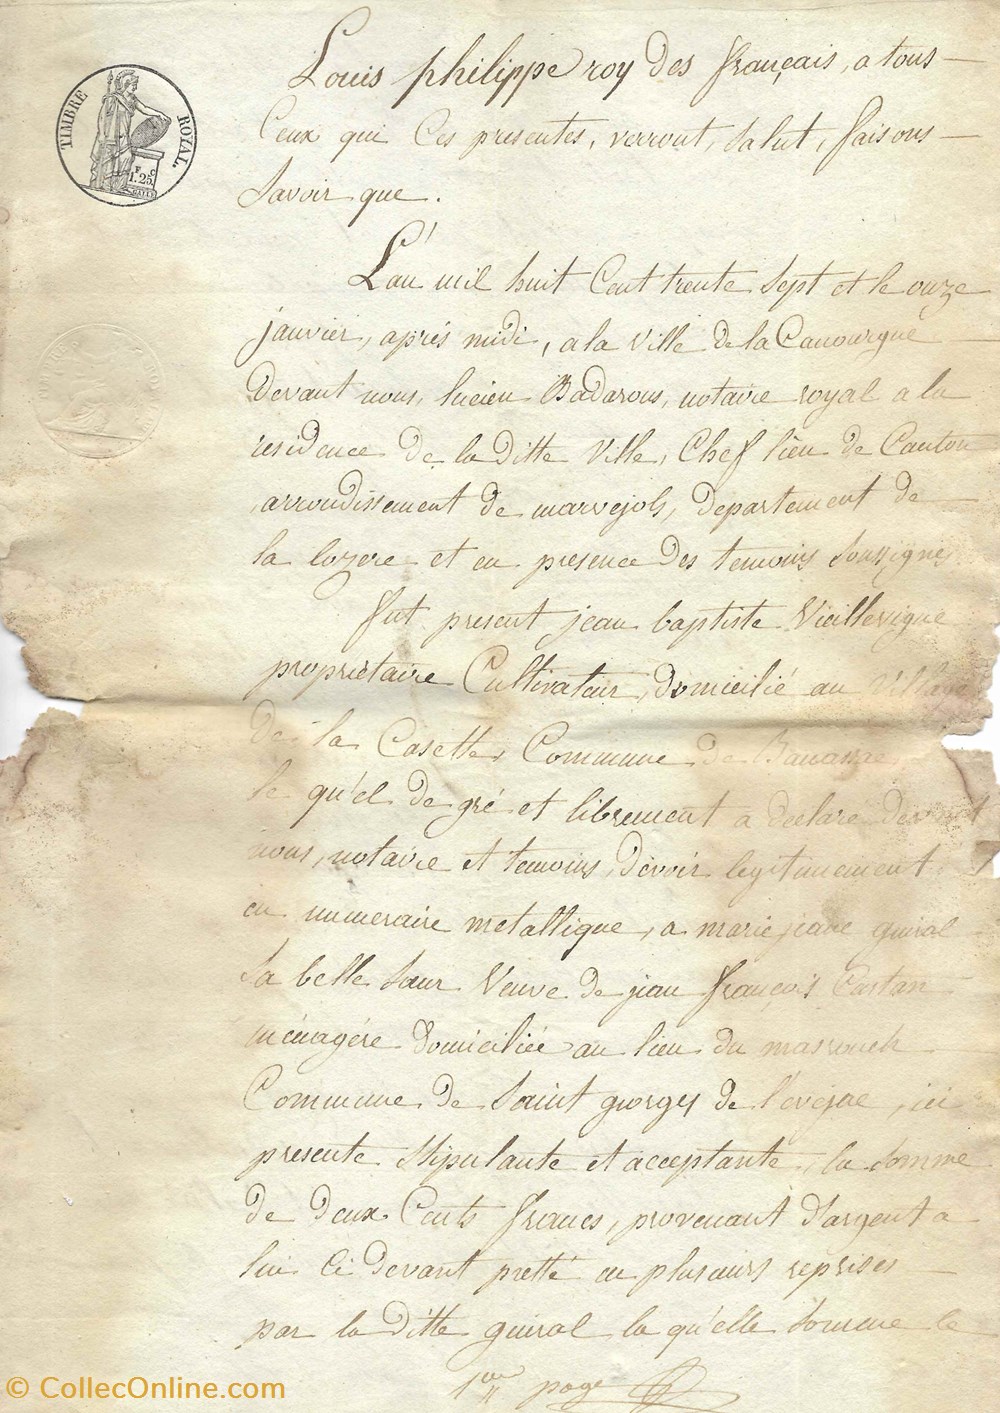 Louis philippe roy des français, a tous
Ceux qui Ces presentes, verront, Salut, faisons
Savoir que.
TIMBRE ROYAL
F C
1.25
L'an mil huit Cent trente Sept et le onze
janvier, après midi, a la Ville de la Canourgue
Devant nous, lucien Badarous, notaire royal a la
residence de la ditte Ville, Chef lieu de Canton
arrondissement de marvejols, departement de
la lozere et en presence des temoins Soussignés
fut present jean baptiste Vieillevigne
proprietaire Cultivateur, domicilié au Village
de la Casette, Commune de Banassac
le qu'el de gré et librement a declaré devant
nous, notaire et temoins, devoir legitimement
en numeraire metallique, a marie jeane guiral
Sa belle Sœur Veuve de jean françois Castan
ménagére domiciliée au lieu du
Commune de Saint georges de l'evejac, ici
presente Stipulante et acceptante, la Somme
de deux Cents francs, provenant d'argent a
lui Ci devant pretté en plusieurs reprises
par la ditte guiral la qu'elle Somme le
1ere page
© CollecOnline.com